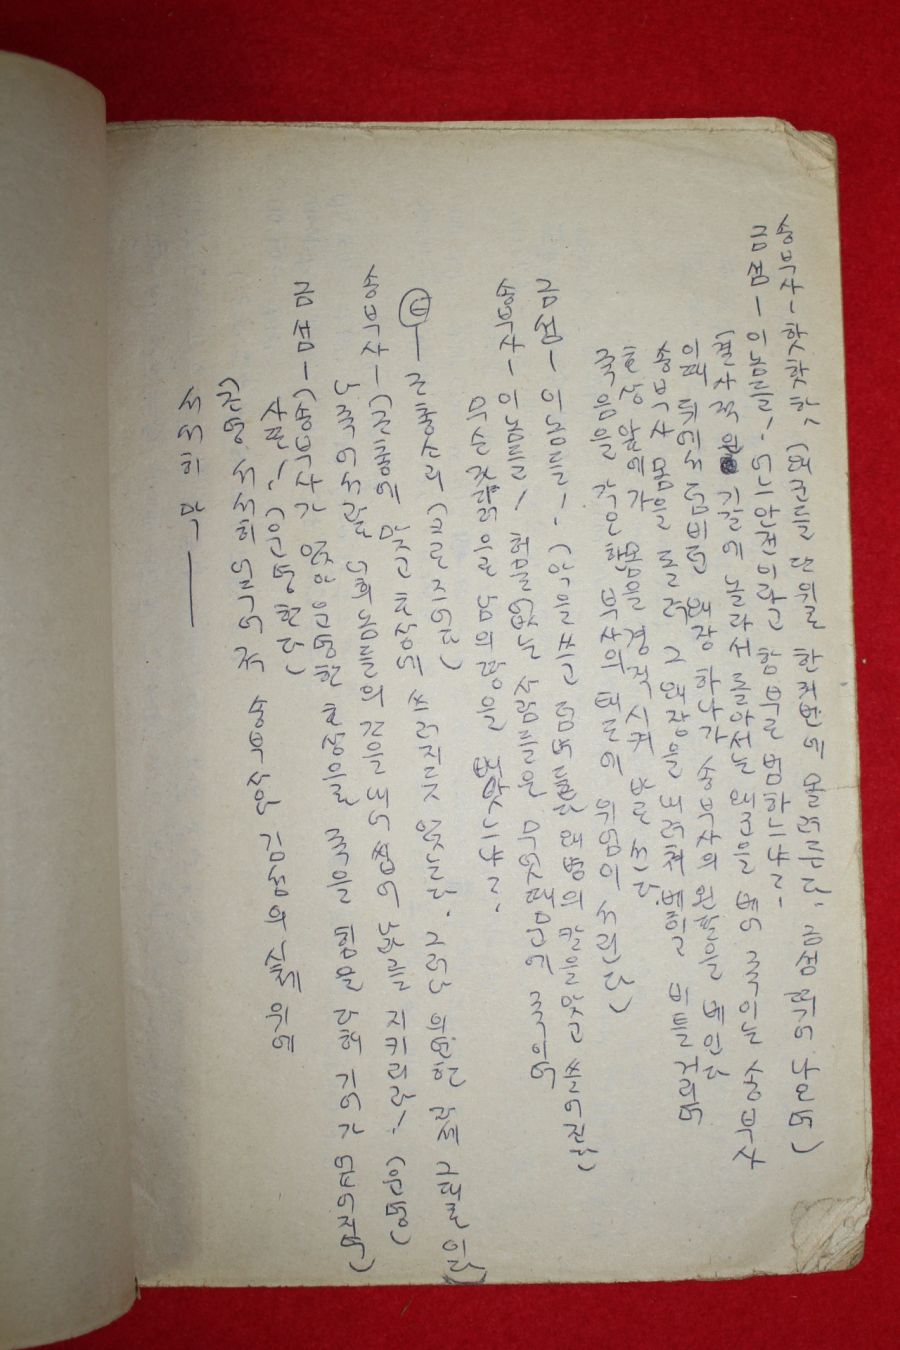 송부사ー핫핫하, (왜군들 단위로 한꺼번에 몰려든다. 금섬 뛰어 나오며)
금섬ー이놈들!, 어느안전이라고 함부로 범하느냐!.
(결사적인 기걸에 놀라서 돌아서는 왜군을 베어 죽이는 송부사
이때 뒤에서 덤비던 왜장 하나가 송부사의 왼팔을 베인다
송부사 몸을 돌려 그 왜장을 내려쳐 베히고 비틀거리며
호상 앞에가 몸을 경직시켜 바로 선다.
죽음을 각오한 부사의 태도에 위엄이 서린다)
금섬ー이놈들!, (악을 쓰고 덤벼들다 왜병의 칼을 맞고 쓸어진다)
송부사ー이놈들! 허물없는 사람들은 무엇때문에 죽이며
무슨 까닭으로 남의 땅을 빼앗느냐!.
Ⓔー군총소리 (크로지업)
송부사ー(군총에 맞고 호상에 쓰러지듯 앉는다. 그러나 의연한 자세 그대로이다)
내 죽어서라도 너희놈들의 간을 내어 씹어 나라를 지키리라!, (운명)
금섬ー(송부사가 앉아 운명한 호상을 죽을 힘을 다해 기어가 얹어지며)
사또!, (운명한다)
(조명 서서히 어두어 져 송부사와 금섬의 시체위에
서서히 막ー